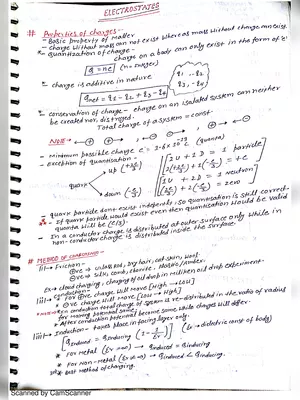 ELECTROSTATICS
# Properties of charges:-
- Basic property of matter
- charge without mass can not exist whereas mass without charge can exist.
- Quantization of charge -
charge on a body can only exist in the form of 'e'
q = ne (n = integer)
- charge is additive in nature
q1 -q2
q3 -q4
qnet = q1-q2+q3-q4
- conservation of charge - charge on an isolated system can neither
be created nor distroyed.
Total charge of a system = const.
Note →
- Minimum possible charge e = 1.6x10-19 C (quanta)
- exception of quantisation -
quark
up (+2e/3)
down (-e/3)
2U + 1D = 1 particle
2(+2e/3)+1(-e/3) = +e
1U + 2D = 1 neutron
1(+2e/3)+2(-e/3) = zero
- quark particle don't exist indepently, so quantisation is still correct.
- If quark particle would exist even then quantisation would be valid
quanta will be (e/3)
- In a conductor charge is distributed at outer surface only while in
non-conductor charge is distributed inside the surface.
# METHOD OF CHARGING:-
(i) Friction-
⊕ve → Glass rod, Dry hair, Cat skin, Wool.
⊖ve → Silk, comb, ebonite, Plastic, Amber
Ex → cloud charging, charging of oil drop in millikan oil drop experiment.
(ii) For ⊕ve charge will move [High → Low]
⊖ve charge will move [Low → High]
- In conduction total charge of system is re-distributed in the ratio of radius
for having potential same.
- After conduction potential become same while charges will differ.
(iii) Induction - takes place in facing layer only.
qinduced = qinducing [1 - 1/εr] (εr → dielectric const of body)
* For Metal (εr → ∞) → qinduced = qinducing
* For Non-Metal (εr ≠ ∞) → qinduced < qinducing
* Best method of charging.
Scanned by CamScanner